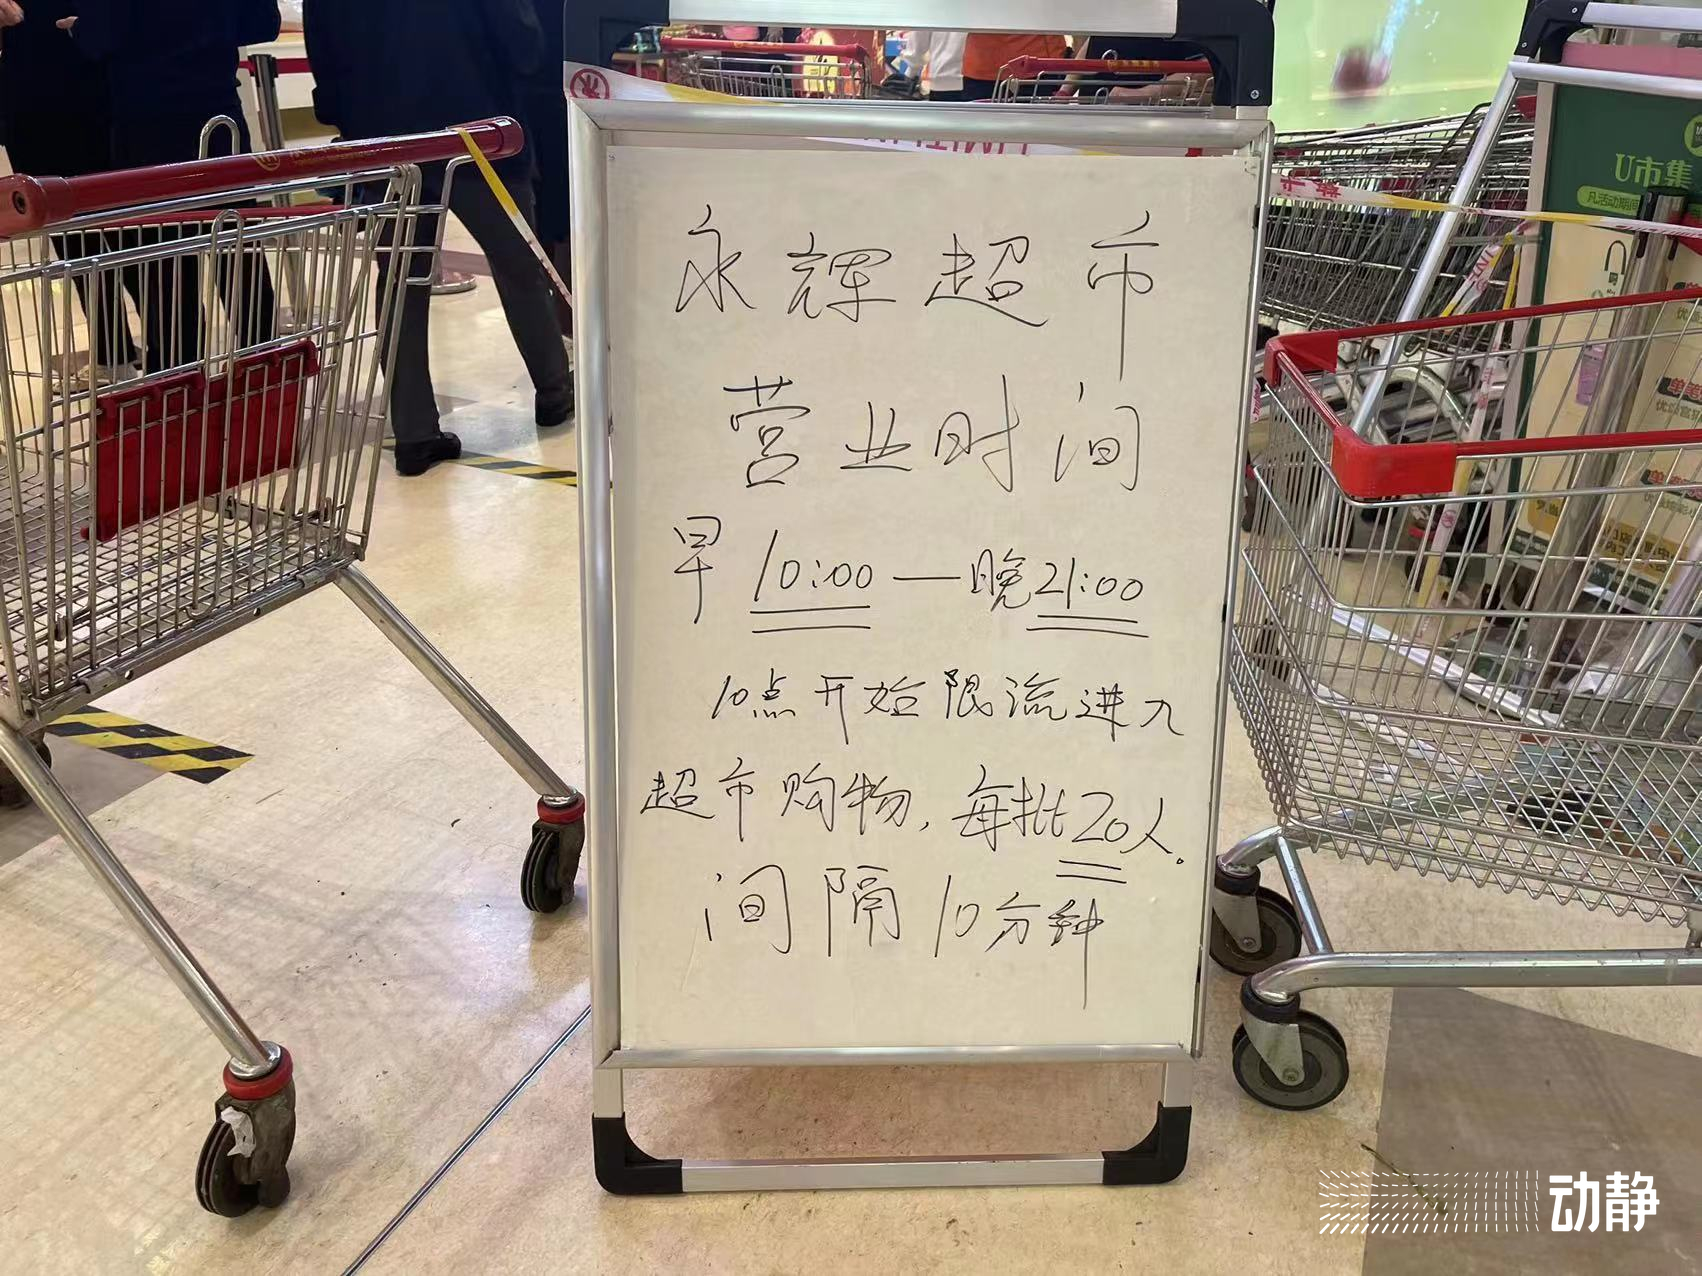 永辉超市
营业时间
早10:00—晚21:00
10点开始限流进入
超市购物,每批20人。
间隔10分钟
U市集
凡活动期间
动静